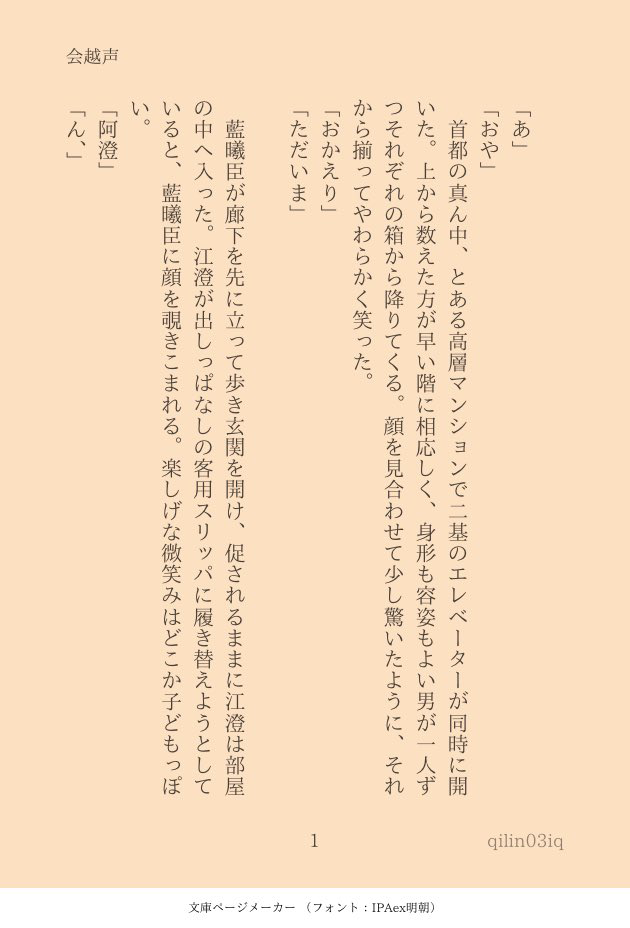 会越声
「あ」
「おや」
　首都の真ん中、とある高層マンションで二基のエレベーターが同時に開
いた。上から数えた方が早い階に相応しく、身形も容姿もよい男が一人ず
つそれぞれの箱から降りてくる。顔を見合わせて少し驚いたように、それ
から揃ってやわらかく笑った。
「おかえり」
「ただいま」
　藍曦臣が廊下を先に立って歩き玄関を開け、促されるままに江澄は部屋
の中へ入った。江澄が出しっぱなしの客用スリッパに履き替えようとして
いると、藍曦臣に顔を覗きこまれる。楽しげな微笑みはどこか子どもっぽ
い。
「阿澄」
「ん、」
1
qilin03iq
文庫ページメーカー （フォント：IPAex明朝）